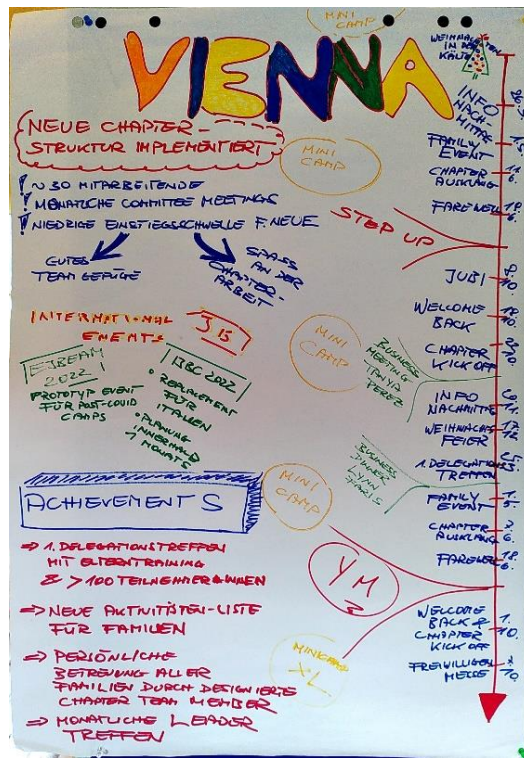 MINI
CAMP
VIENNA
WEIHNACHTEN
IN DER
KÄLTE
NEUE CHAPTER-
STRUKTUR IMPLEMENTIERT
! ~ 30 MITARBEITENDE
! MONATLICHE COMMITTEE MEETINGS
! NIEDRIGE EINSTIEGSSCHWELLE F. NEUE
GUTES
TEAM GEFÜGE
SPASS
AN DER
CHAPTER-
ARBEIT
INTERNATIONAL
EVENTS
J 15
EJBEAM
2022
PROTOTYP EVENT
FÜR POST-COVID
CAMPS
IJBC 2022
• REPLACEMENT
FÜR
ITALIEN
• PLANUNG
INNERHALB
1 MONATS
ACHIEVEMENTS
⇒ 1. DELEGATIONSTREFFEN
MIT ELTERNTRAINING
& > 100 TEILNEHMER*INNEN
⇒ NEUE AKTIVITÄTEN-LISTE
FÜR FAMILIEN
⇒ PERSÖNLICHE
BETREUUNG ALLER
FAMILIEN DURCH DESIGNIERTE
CHAPTER TEAM MEMBER
⇒ MONATLICHE LEADER
TREFFEN
MINI
CAMP
STEP UP
MINI
CAMP
BUSINESS
MEETING
TANYA
PEREZ
BUSINESS
DINNER
LYNN
PARIS
MINI
CAMP
YM
MINICAMP
XL
INFO
NACH-
MITTAG
FAMILY
EVENT
CHAPTER
AUSKLANG 11.6.
FAREWELL 18.6.
JUBI 8.10.
WELCOME
BACK
CHAPTER
KICK OFF
INFO
NACHMITTAG
WEIHNACHTS
FEIER
1. DELEGATIONS
TREFFEN
FAMILY
EVENT
CHAPTER
AUSKLANG
FAREWELL 18.6.
WELCOME
BACK &
CHAPTER
KICK OFF 1.10.
FREIWILLIGEN
MESSE